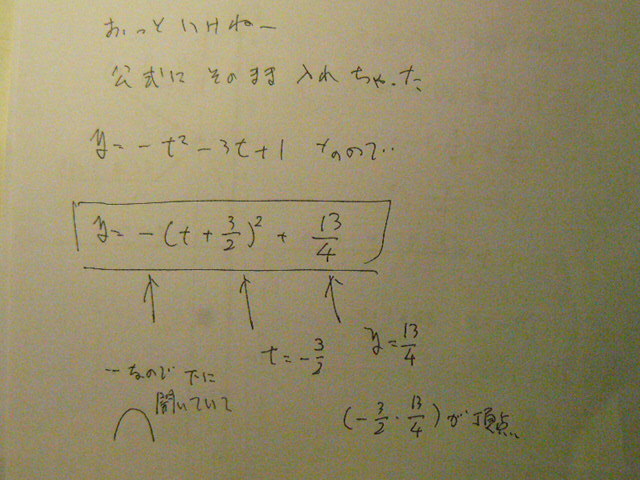 おっといけねー
公式にそのまま入れちゃった
y = -t² - 3t + 1 なので..
y = -(t + 3/2)² + 13/4
t = -3/2
y = 13/4
-なので下に
開いていて
(-3/2 · 13/4) が頂点